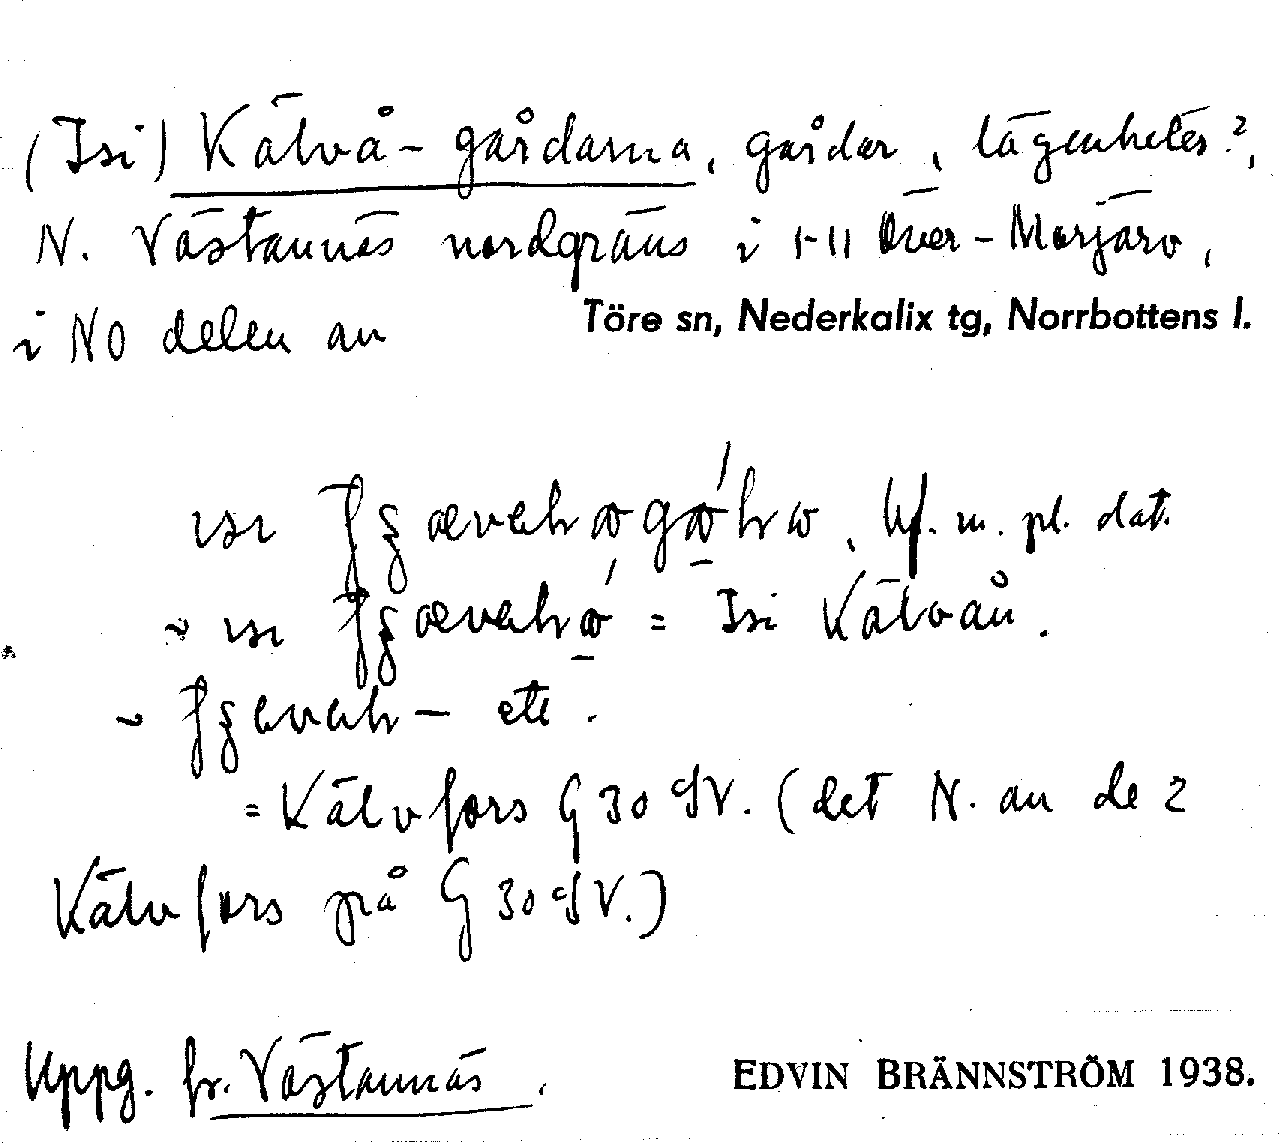 (Isi) Kälvå-gårdarna, gårdar, lägenheter?,
N. Västannäs nordgräns i Över-Morjärv,
i NO delen av
Töre sn, Nederkalix tg, Norrbottens l.
bf. m. pl. dat.
= Isi Kälvån.
etc.
= Kälvfors G 30 SV. (det N. av de 2
Kälvfors på G 30 SV.)
Uppg. fr. Västannäs.
EDVIN BRÄNNSTRÖM 1938.